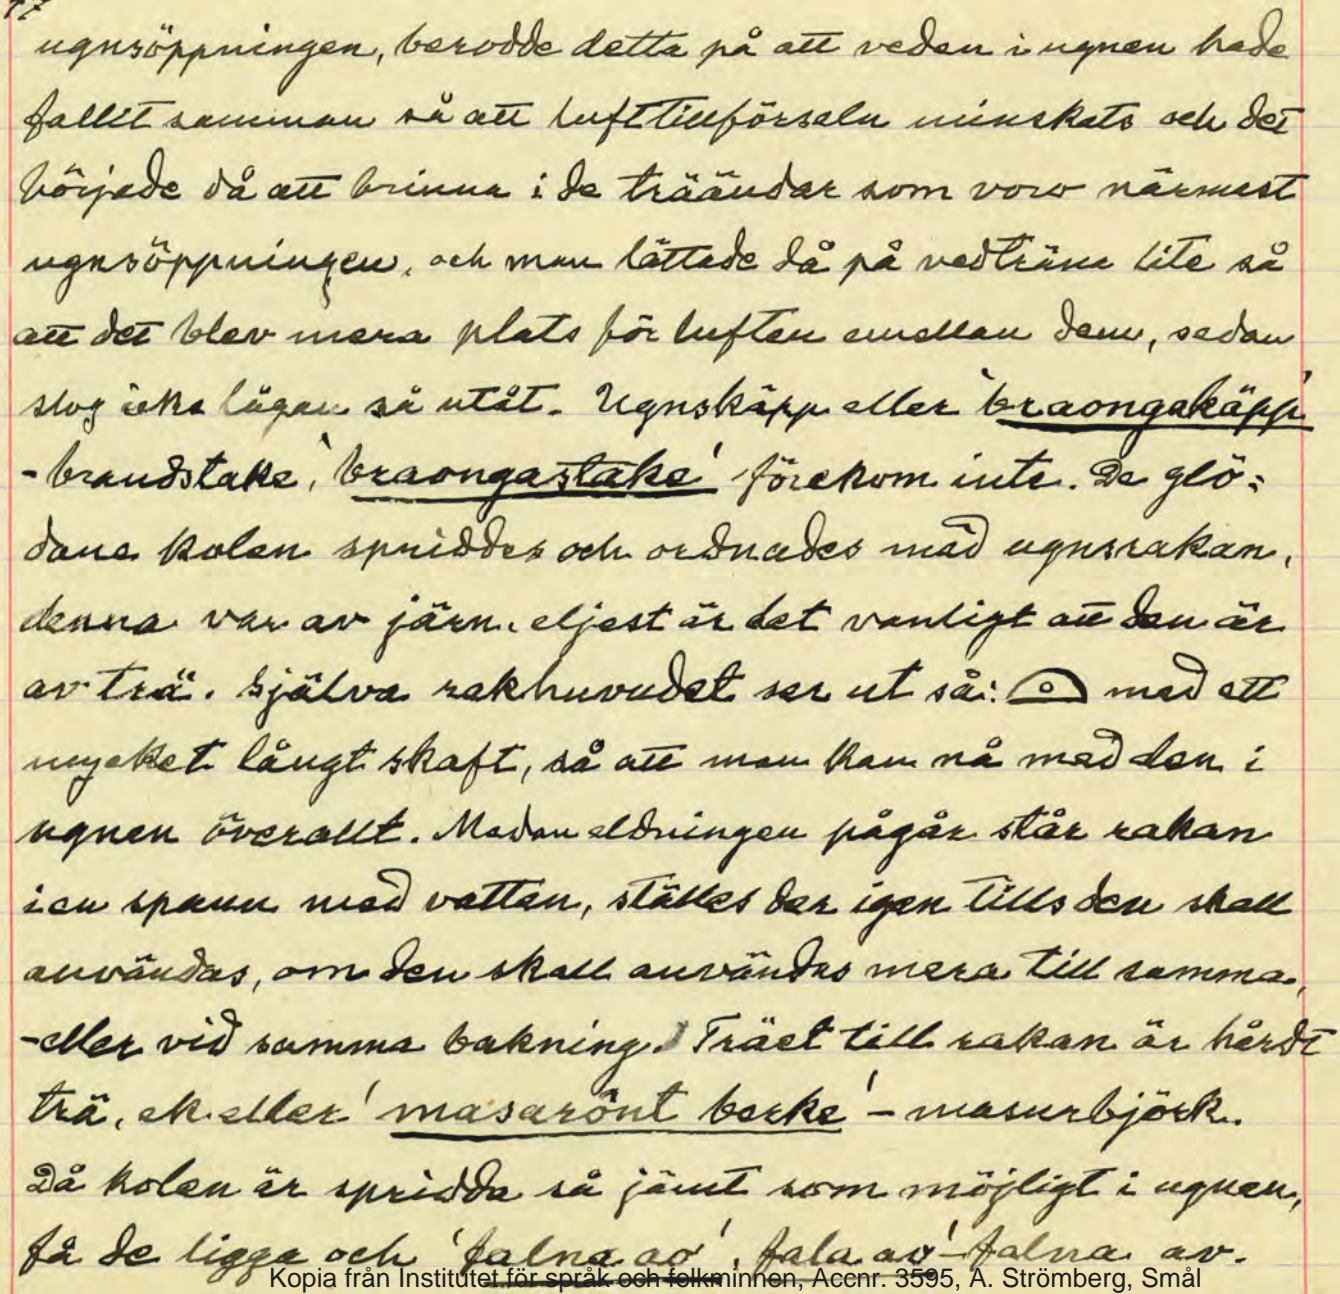 17
ugnsöppningen, berodde detta på att veden i ugnen hade
fallit samman så att lufttillförseln minskats och det
började då att brinna i de träändar som voro närmast
ugnsöppningen, och man lättade då på vedträna lite så
att det blev mera plats för luften emellan dem, sedan
slog icke lågan så utåt. Ugnskäpp eller 'braongakäpp'
-brandstake, 'braongastake' förekom inte. De glö=
dane kolen spriddes och ordnades med ugnsrakan,
denna var av järn, eljest är det vanligt att den är
av trä. Själva rakhuvudet ser ut så: med ett
mycket långt skaft, så att man kan nå med den i
ugnen överallt. Medan eldningen pågår står rakan
i en spann med vatten, ställes der igen tills den skall
användas, om den skall användas mera till samma,
-eller vid samma bakning. Träet till rakan är hårdt
trä, ek eller 'masarönt berke' - masurbjörk.
Då kolen är spridda så jämt som möjligt i ugnen,
få de ligga och 'falna ao', fala ao' - falna av.
Kopia från Institutet för språk och folkminnen, Accnr. 3595, A. Strömberg, Smål